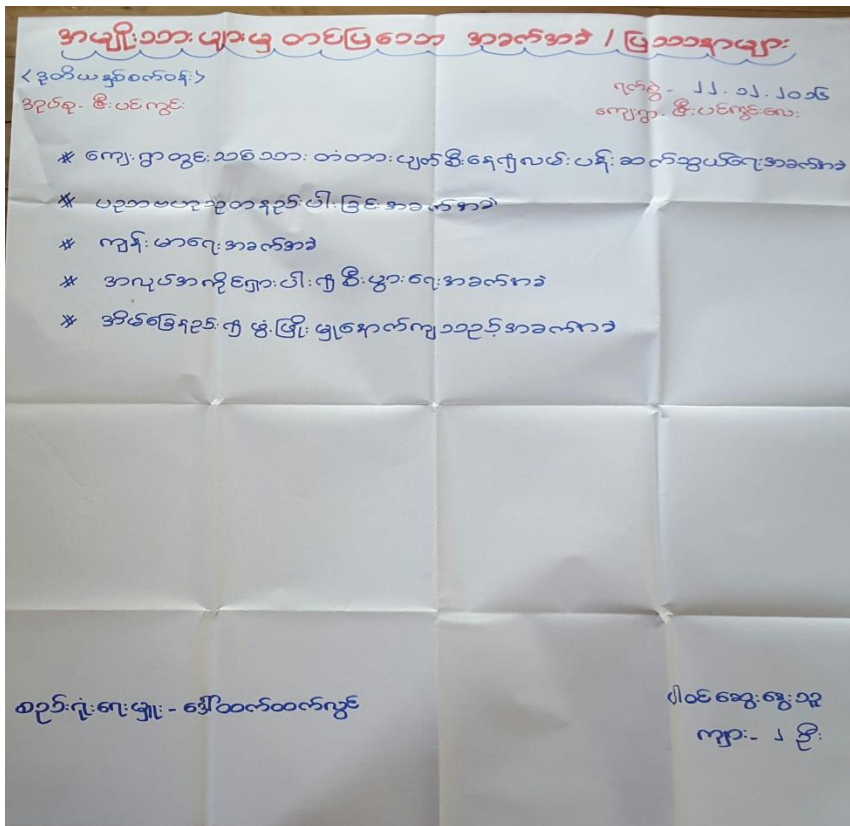 အမျိုးသားများမှ တင်ပြသော အခက်အခဲ / ပြဿနာများ
<ဒုတိယနှစ်စက်ဝန်း>
ရက်စွဲ - ၂၂.၁၂.၂၀၁၆
အုပ်စု - ဇီးပင်ကွင်း
ကျေးရွာ - ဇီးပင်ကွင်းလေး
* ကျေးရွာတွင်းသစ်သား တံတားပျက်စီးနေ၍လမ်းပန်းဆက်သွယ်ရေးအခက်အခဲ
* ပညာဗဟုသုတနည်းပါးခြင်းအခက်အခဲ
* ကျန်းမာရေးအခက်အခဲ
* အလုပ်အကိုင်ရှားပါး၍စီးပွားရေးအခက်အခဲ
* အိမ်ခြေနည်း၍ ဖွံ့ဖြိုးမှုနောက်ကျသည့်အခက်အခဲ
စည်းရုံးရေးမှူး - ဒေါ်ထက်ထက်လွင်
ပါဝင်ဆွေးနွေးသူ
ကျား - ၂ ဦး